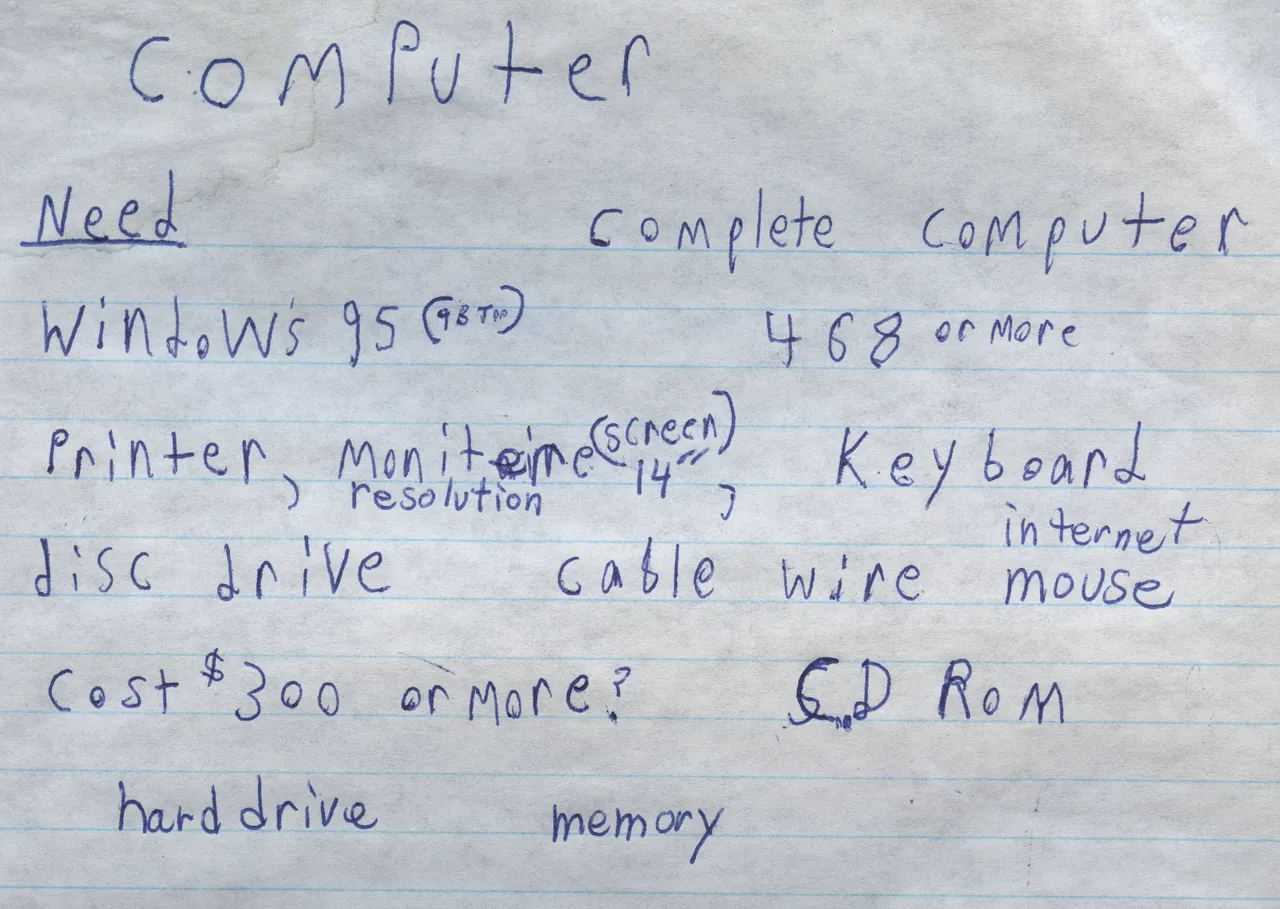 Computer
Need complete computer
Windows 95 (98 Too) 468 or more
Printer, moniteire (screen) 14", Keyboard
resolution
internet
disc drive cable wire mouse
Cost $300 or more? CD Rom
hard drive memory